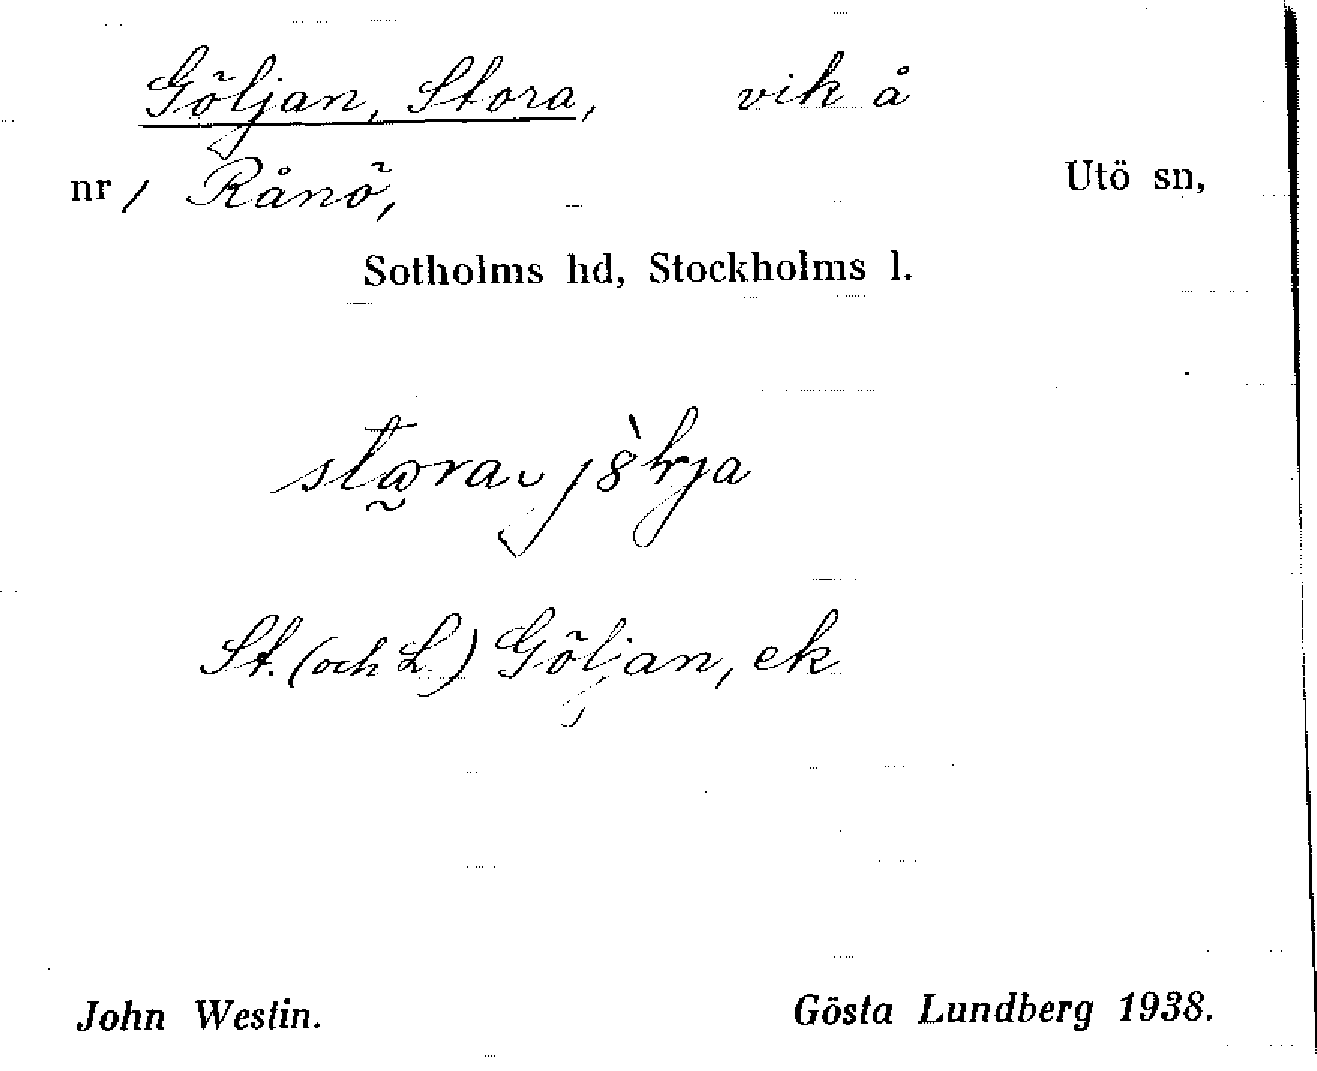 Göljan, Stora, vik å
nr 1 Rånö, Utö sn,
Sotholms hd, Stockholms l.
St. (och L.) Göljan, ek
John Westin. Gösta Lundberg 1938.